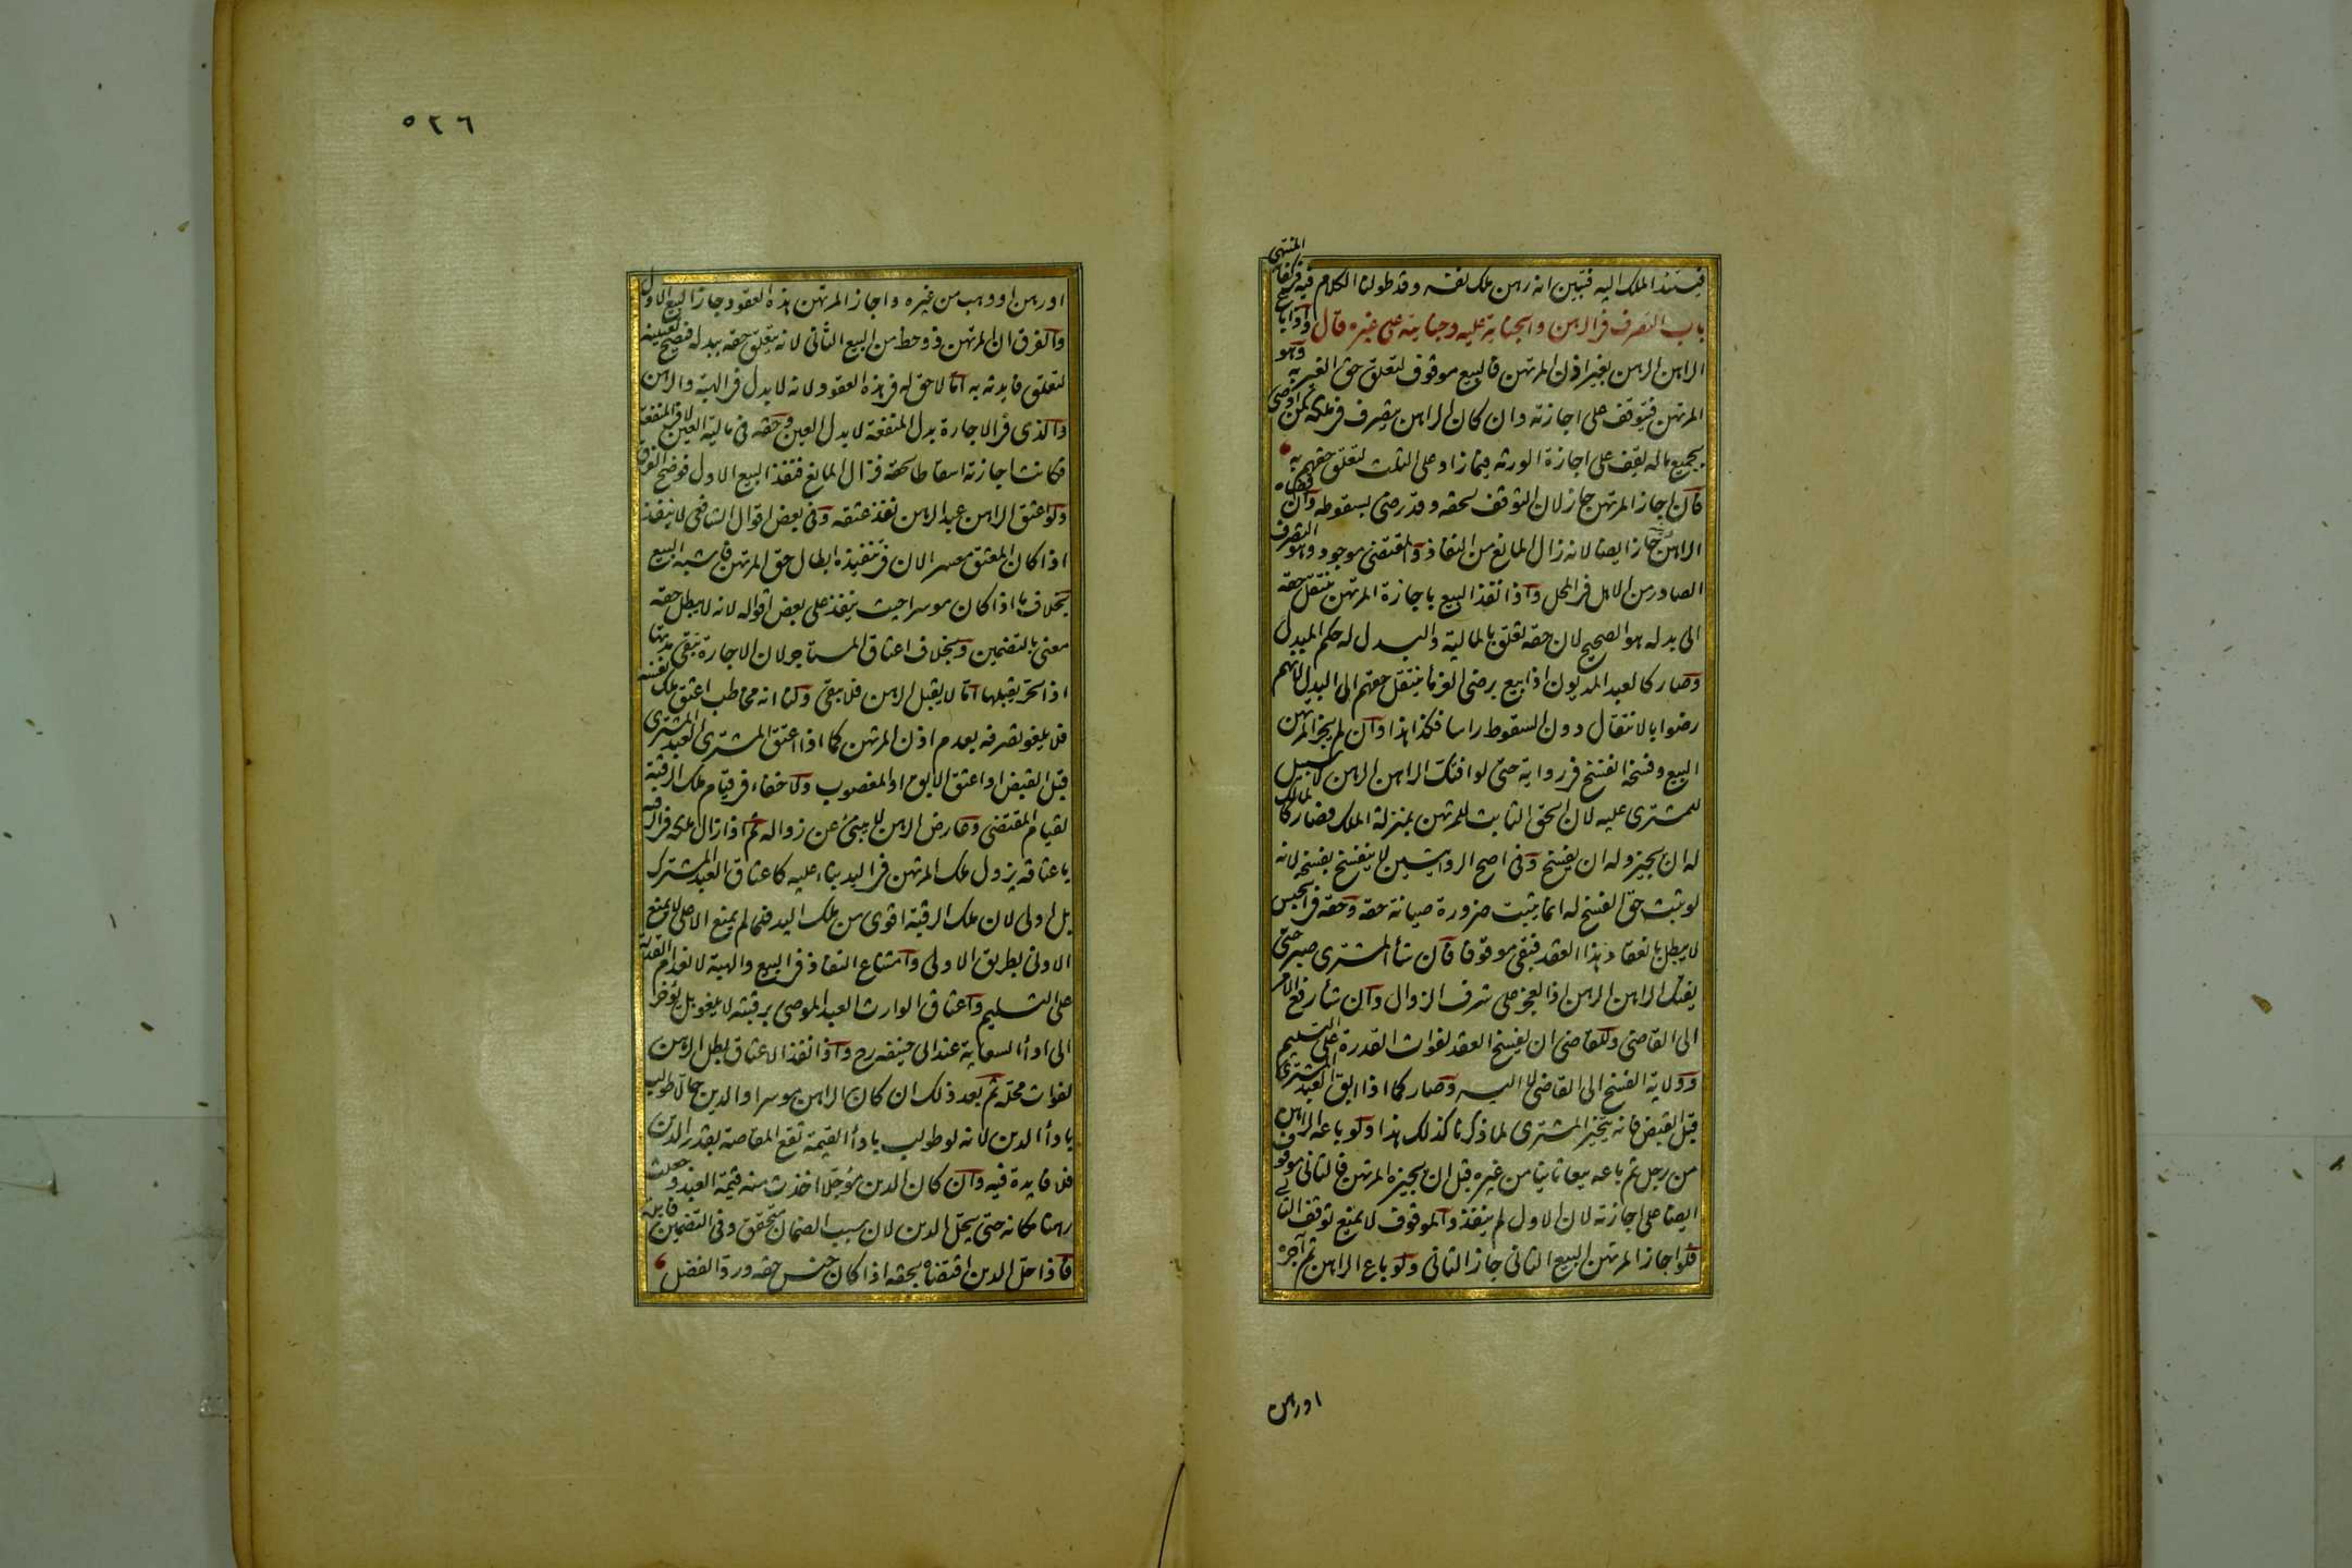 فيستند الملك اليه فتبين انه رهن ملك نفسه وقد طولنا الكلام فيه فى كفاية المنتهى
باب التصرف فى الرهن والجناية عليه وجنايته على غيره قال واذا باع
الراهن الرهن بغير اذن المرتهن فالبيع موقوف لتعلق حق الغير به وهو
المرتهن فيتوقف على اجازته وان كان الراهن يتصرف فى ملكه كمن اوصى
بجميع ماله يقف على اجازة الورثه فيما زاد على الثلث لتعلق حقهم به
فان اجاز المرتهن جاز لان التوقف لحقه وقد رضى بسقوطه وان قضاه
الراهن دينه جاز ايضا لانه زال المانع من النفاذ والمقتضى موجود وهو التصرف
الصادر من الاهل فى المحل واذا نفذ البيع باجازة المرتهن ينتقل حقه
الى بدله هو الصحيح لان حقه تعلق بالمالية والبدل له حكم المبدل
وصار كالعبد المديون اذا بيع برضى الغرماء ينتقل حقهم الى البدل لانهم
رضوا بالانتقال دون السقوط راسا فكذا هذا وان لم يجز المرتهن
البيع وفسخه انفسخ فى رواية حتى لو افتك الراهن الرهن لا سبيل
للمشترى عليه لان الحق الثابت للمرتهن بمنزلة الملك فصار كالمالك
له ان يجيز وله ان يفسخ وفى اصح الروايتين لا ينفسخ بفسخه لانه
لو ثبت حق الفسخ له انما يثبت ضرورة صيانة حقه وحقه فى الحبس
لا يبطل بانعقاد هذا العقد فبقى موقوفا فان شاء المشترى صبر حتى
يفتك الراهن الرهن اذ العجز على شرف الزوال وان شاء رفع الامر
الى القاضى وللقاضى ان يفسخ العقد لفوات القدرة على التسليم
وولاية الفسخ الى القاضى لا اليه وصار كما اذا ابق العبد المشترى
قبل القبض فانه يتخير المشترى لما ذكرنا كذلك هذا ولو باعه الراهن
من رجل ثم باعه بيعا ثانيا من غيره قبل ان يجيزه المرتهن فالثانى موقوف
ايضا على اجازته لان الاول لم ينفذ والموقوف لا يمنع توقف الثانى
فلو اجاز المرتهن البيع الثانى جاز الثانى ولو باع الراهن ثم آجره
اورهن
٥٢٦
اورهن او وهب من غيره واجاز المرتهن هذه العقود جاز البيع الاول
والفرق ان المرتهن ذو حظ من البيع الثانى لانه يتعلق حقه ببدله فيصح تعيينه
لتعلق فايدته به اما لا حق له فى هذه العقود لانه لا بدل فى الهبة والرهن
والذى فى الاجارة بدل المنفعة لا بدل العين وحقه فى مالية العين لا فى المنفعة
فكانت اجازته اسقاطا لحقه فزال المانع فنفذ البيع الاول فوضح الفرق
ولو اعتق الراهن عبد الرهن نفذ عتقه وفى بعض اقوال الشافعى لا ينفذ
اذا كان المعتق معسرا لان فى تنفيذه ابطال حق المرتهن فاشبه البيع
بخلاف ما اذا كان موسرا حيث ينفذ على بعض اقواله لانه لا يبطل حقه
معنى بالتضمين وبخلاف اعتاق المستاجر لان الاجارة تبقى مدتها
اذ الحر يقبلها اما لا يقبل الرهن فلا يبقى ولنا انه مخاطب اعتق ملك نفسه
فلا يلغو تصرفه بعدم اذن المرتهن كما اذا اعتق المشترى العبد المشترى
قبل القبض او اعتق الابق او المغصوب ولا خفاء فى قيام ملك الرقبة
لقيام المقتضى وعارض الرهن لا ينبئ عن زواله ثم اذا زال ملكه فى الرقبة
باعتاقه يزول ملك المرتهن فى اليد بناء عليه كاعتاق العبد المشترك
بل اولى لان ملك الرقبة اقوى من ملك اليد فلما لم يمنع الاعلى لا يمنع
الادنى بطريق الاولى وامتناع النفاذ فى البيع والهبة لانعدام القدرة
على التسليم واعتاق الوارث العبد الموصى برقبته لا يلغو بل يؤخر
الى اداء السعاية عند ابى حنيفه رح واذا نفذ الاعتاق بطل الرهن
لفوات محله ثم بعد ذلك ان كان الراهن موسرا والدين حالا طولب
باداء الدين لانه لو طولب باداء القيمة تقع المقاصة بقدر الدين
فلا فايدة فيه وان كان الدين مؤجلا اخذت منه قيمة العبد وجعلت
رهنا مكانه حتى يحل الدين لان سبب الضمان متحقق وفى التضمين فايدة
فاذا حل الدين اقتضاه بحقه اذا كان جنس حقه ورد الفضل